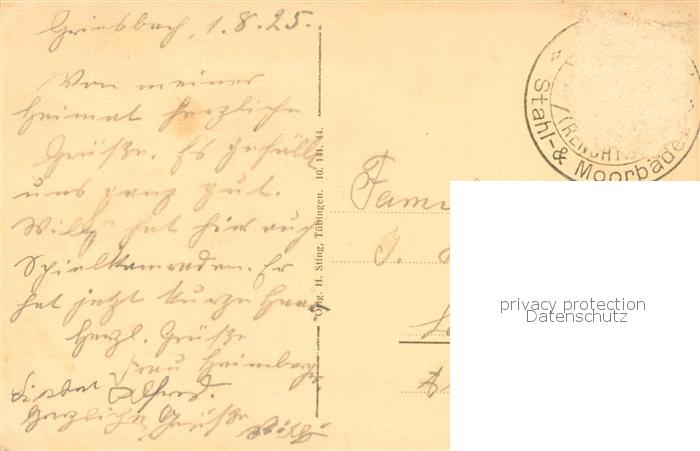 Griesbach, 1.8.25.
Von meiner
Heimat herzliche
Grüße. Es gefällt
uns ganz gut.
Willy hat hier auch
Spielkamraden. Er
hat jetzt kurze Haar
Herzl. Grüße
Frau
Alfred.
Herzliche Grüße
Orig. H. Sting, Tübingen. 10, 141. 44.
Stahl- & Moorbäde
(RENCHT
Fami
J.
privacy protection
Datenschutz